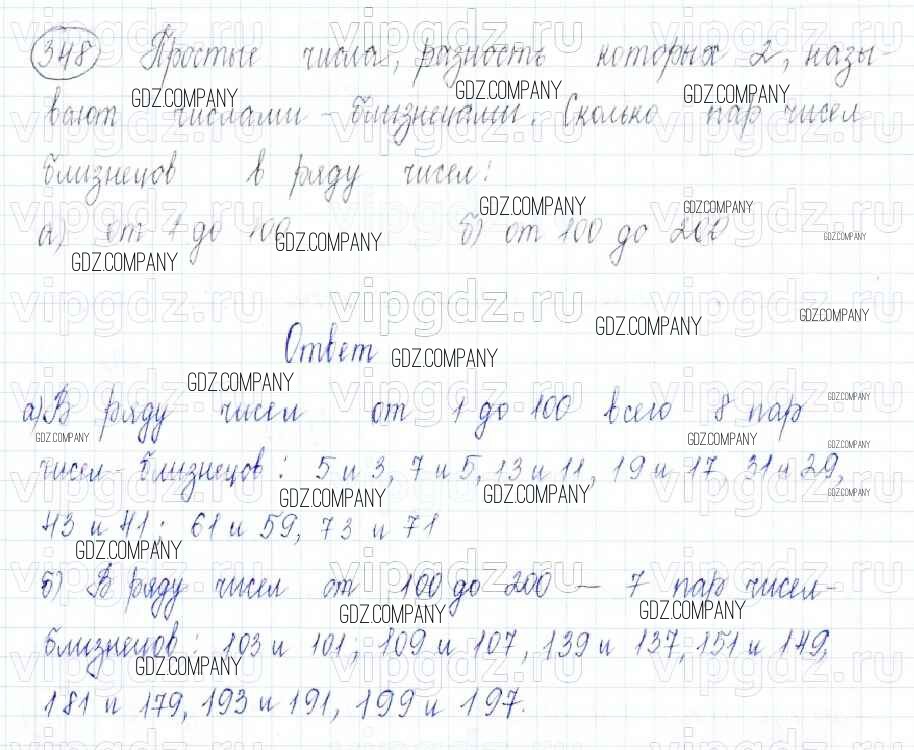 348 Простые числа, разность которых 2, назы-
вают числами - близнецами. Сколько пар чисел
близнецов в ряду чисел:
а) от 1 до 100 б) от 100 до 200
Ответ
а) В ряду чисел от 1 до 100 всего 8 пар
чисел - близнецов: 5 и 3, 7 и 5, 13 и 11, 19 и 17, 31 и 29,
43 и 41; 61 и 59, 73 и 71
б) В ряду чисел от 100 до 200 — 7 пар чисел-
близнецов: 103 и 101; 109 и 107, 139 и 137, 151 и 149,
181 и 179, 193 и 191, 199 и 197.